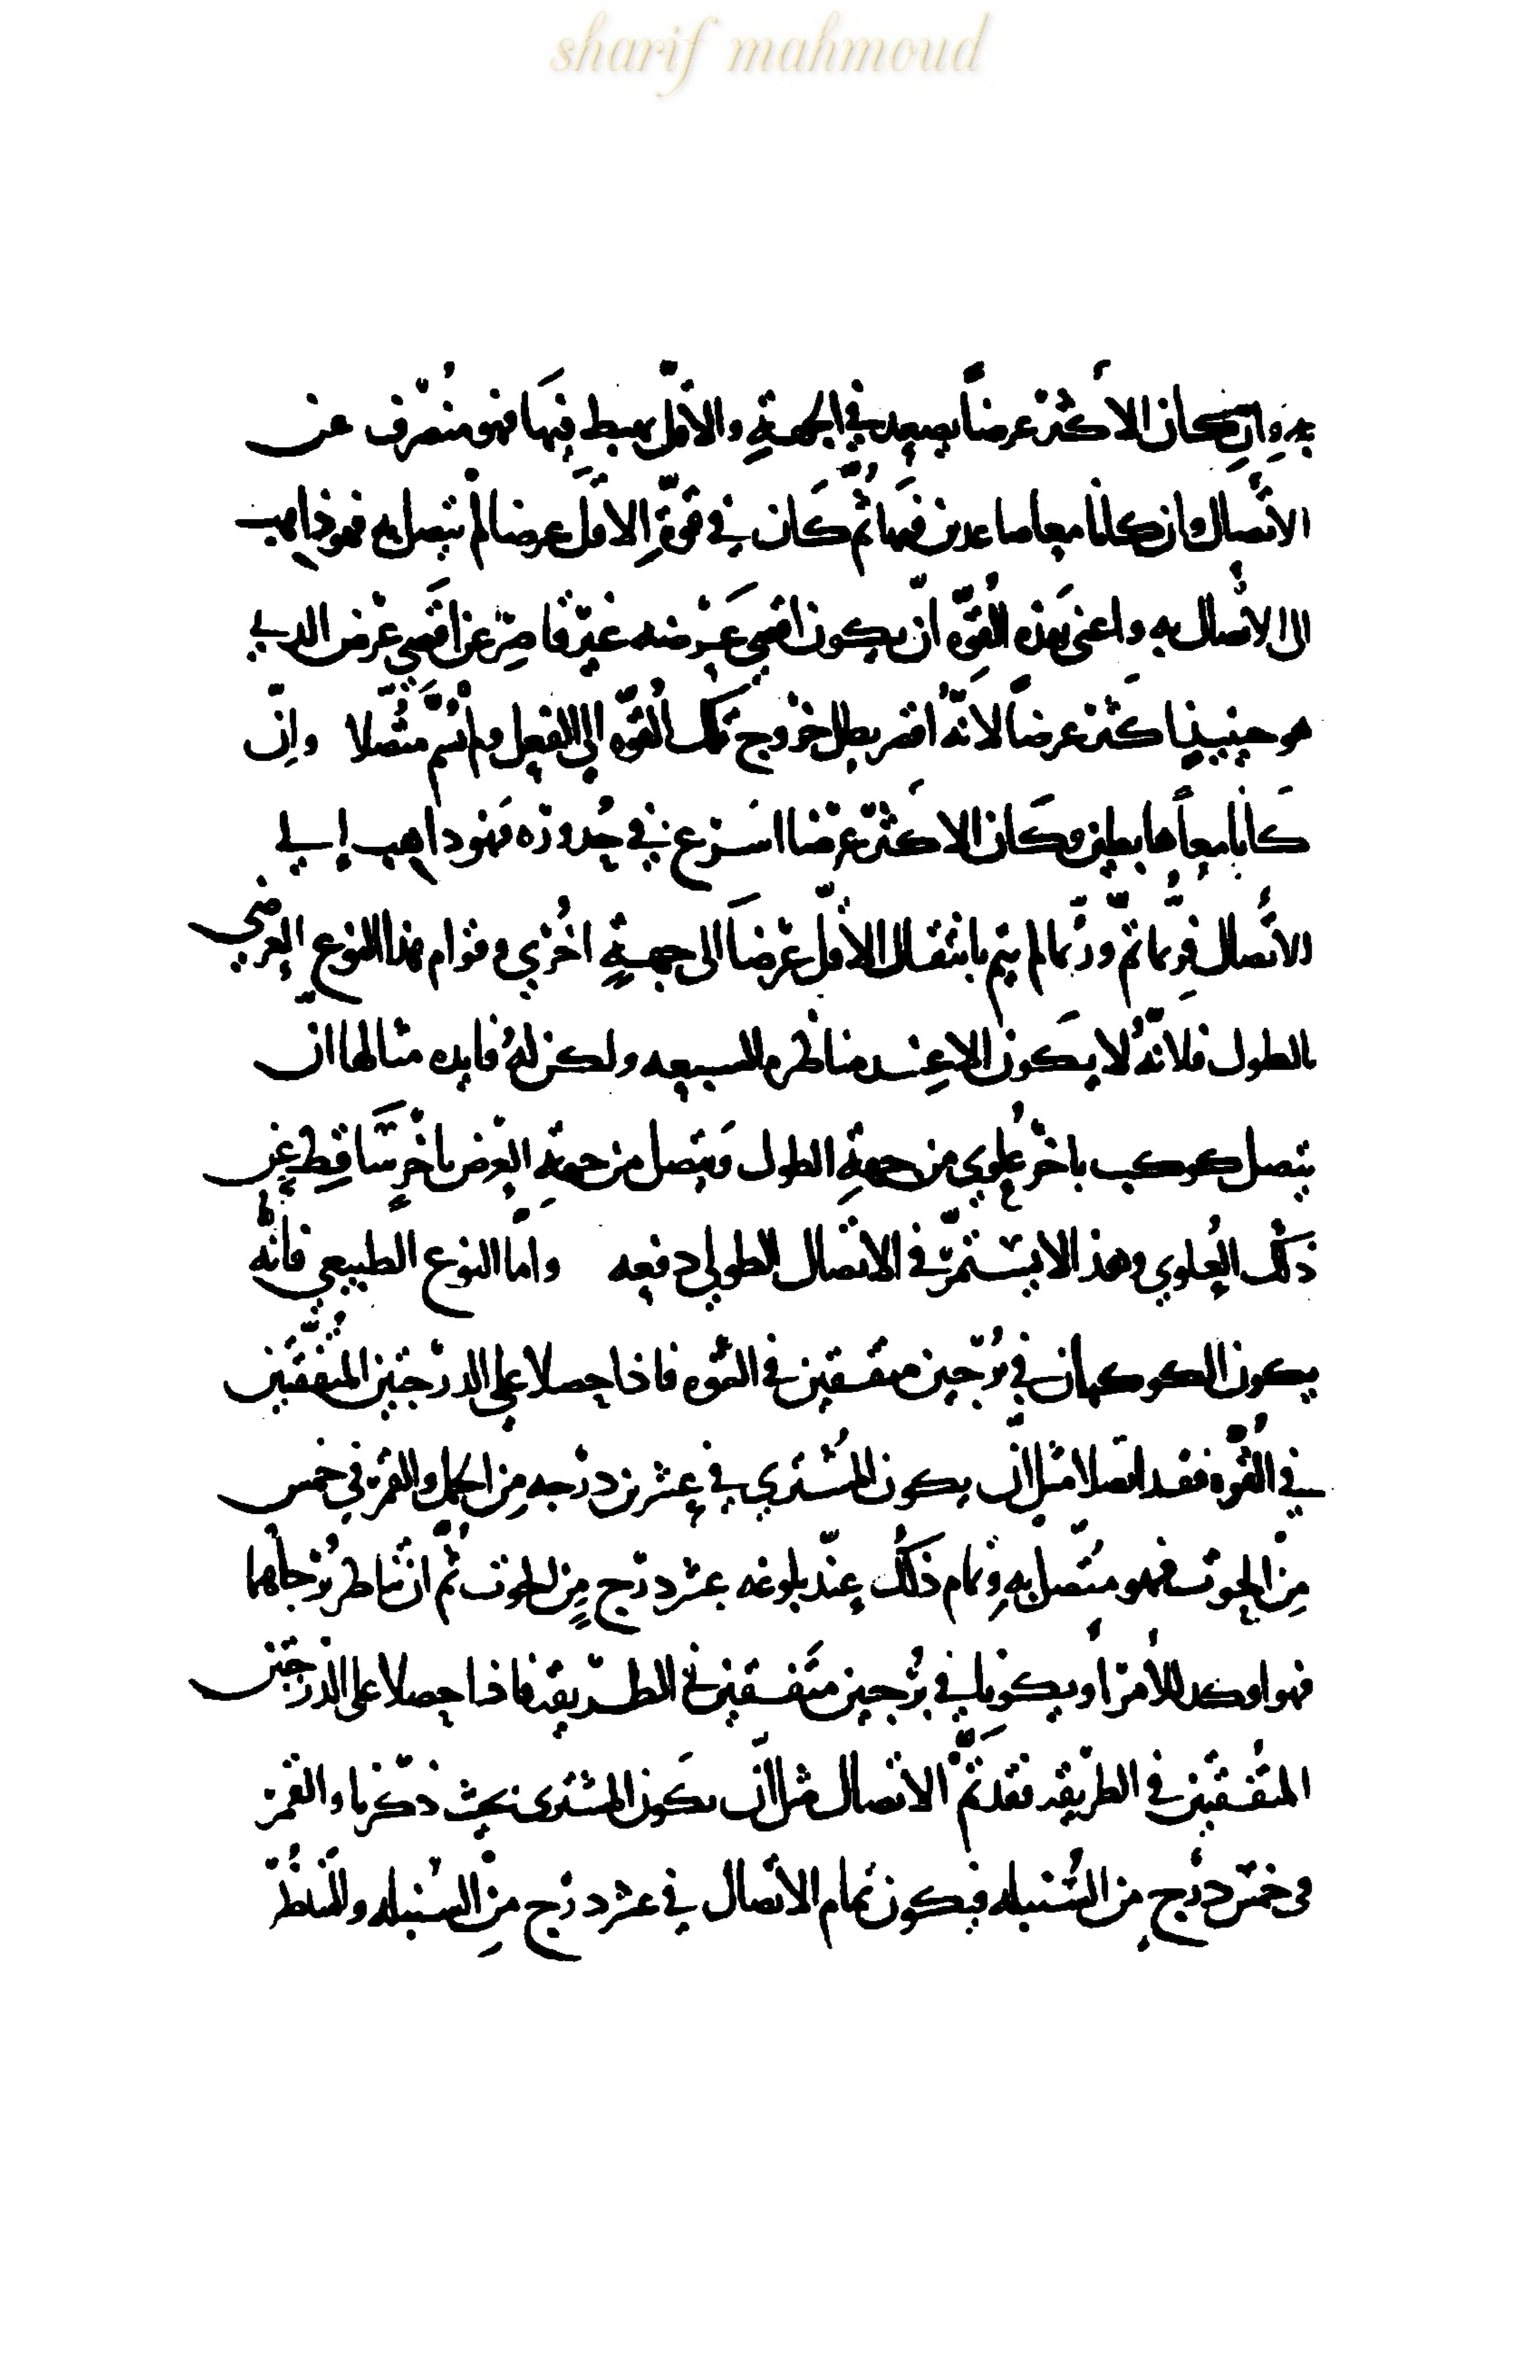 sharif mahmoud
به وان كان الاكثر عرضاً يصعد في الجهة والاقل يهبط فيها فهو منصرف عن
الاتصال وان كانا معا صاعدين فيها ثم كان في قوة الاقل عرضا لم يتصل به فهو ذاهب
الى الاتصال به واعنى بهذه القوه ان يكون اقصى عرضه غير قاصر عن اقصى عرض الذي
هو حينيذ اكثر عرضاً لانه اقصر بطل خروج تلك القوه الى الفعل ولم يتم متصلا وان
كانا معاً هابطين وكان الاكثر عرضا اسرع في حدوره فهو ذاهب الى
الاتصال فربما تم وربما لم يتم بانتقال الاقل عرضاً الى جهةٍ اخرى وقوام هذا النوع العرضي
بالطول فلانه لا يكون الا عند مناظره السبعه ولكن له فايده مثالها ان
يتصل كوكب باخر علوي من جهة الطول ويتصل من جهة العرض باخر ساقط عن
ذلك العلوي وهذا لا يستمر في الاتصال الطولي دفعه واما النوع الطبيعي فانه
يكون الكوكبان في برجين متفقين في القوه فاذا حصلا على الدرجتين المتفقتين
في القوه فقد اتصلا مثل ان يكون المشتري في عشرين درجه من الحمل والقمر في خمس
من الحوت فهو متصل به وتمام ذلك عند بلوغه عشر درج من الحوت ثم ان تناظر برجاهما
فهو اوكد للامر او يكونا في برجين متفقين في الطريقه فاذا حصلا على الدرجتين
المتفقتين في الطريقه فقد تم الاتصال مثل ان يكون المشترى بحيث ذكرنا والقمر
فى خمس درج من السنبله فيكون تمام الاتصال في عشر درج من السنبله وللنظر